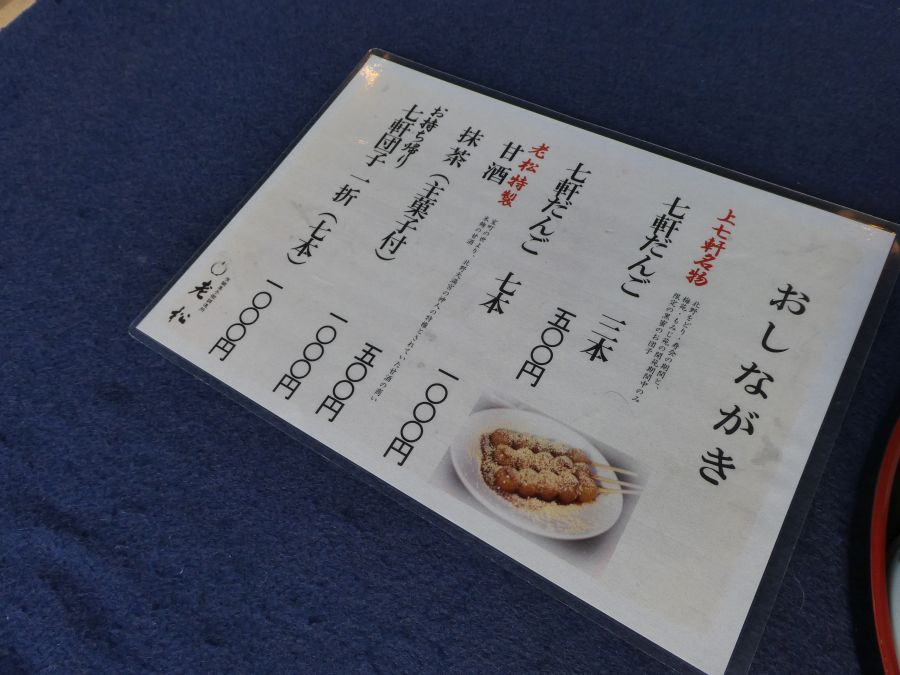 おしながき
上七軒名物
七軒だんご 三本 五〇〇円
北野をどり・寿会の期間と、
梅苑・もみじ苑の開苑期間中のみ
限定の黒蜜のお団子
七軒だんご 七本 一〇〇〇円
老松特製
甘酒 五〇〇円
抹茶(主菓子付) 一〇〇〇円
お持ち帰り
七軒団子 一折(七本) 一〇〇〇円
老松